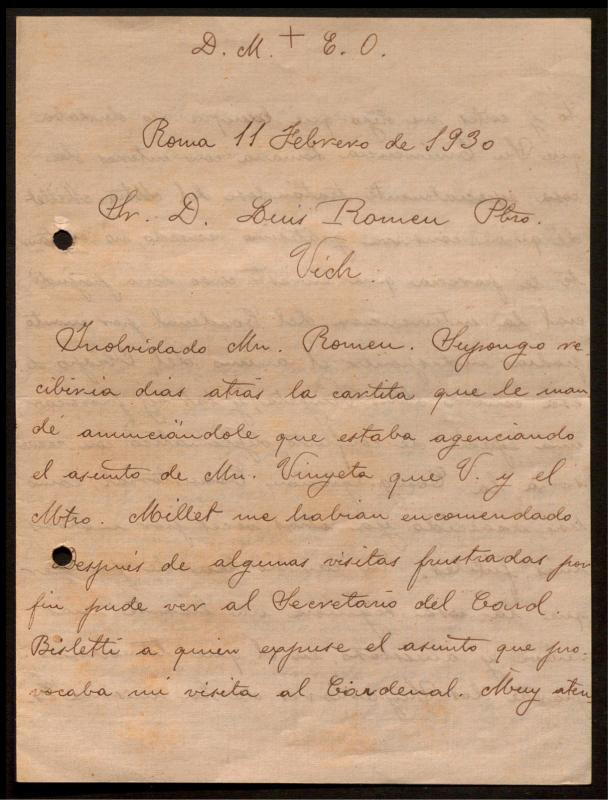 D. M. + E. O.
Roma 11 Febrero de 1930
Sr. D. Luis Romeu Pbro.
Vich.
Inolvidado Mn. Romeu. Supongo re-
cibiria dias atrás la cartita que le man
dé anunciándole que estaba agenciando
el asunto de Mn. Vinyeta que V. y el
Mtro. Millet me habian encomendado
Después de algunas visitas frustradas por
fin pude ver al Secretario del Card.
Bisletti a quien expuse el asunto que pro-
vocaba mi visita al Cardenal. Muy aten-